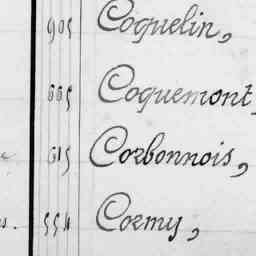 905 Coquelin,
665 Coquemont,
615 Corbonnois,
s. 554 Cormy,